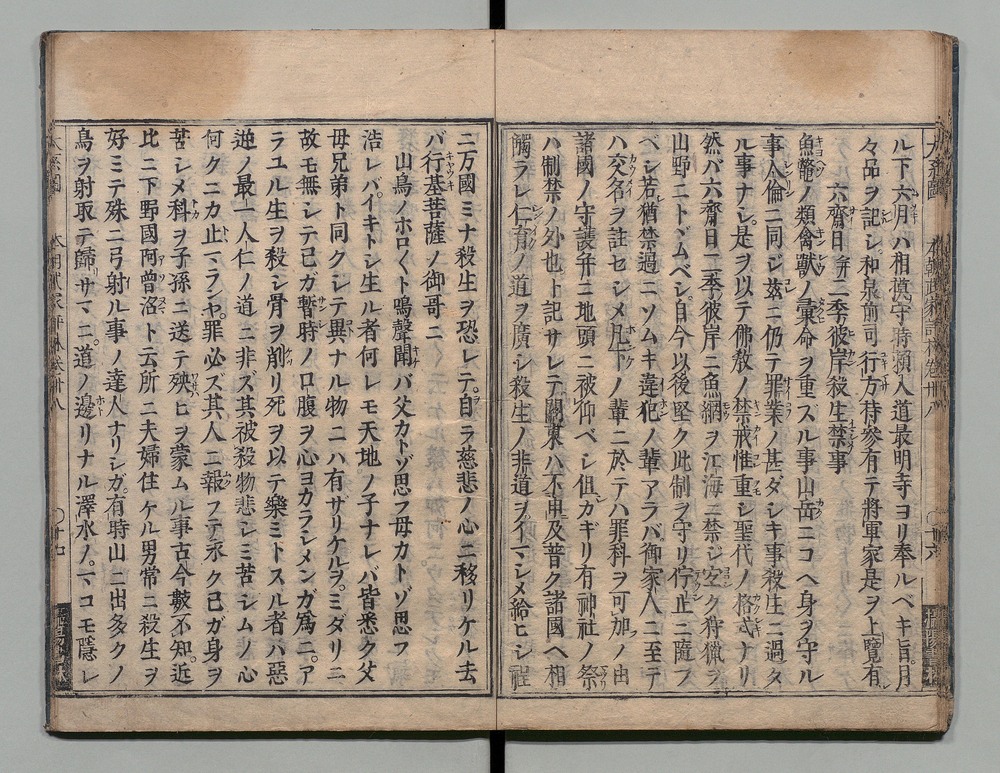 ル下六月ハ相摸守時頼入道最明寺ヨリ奉ルベキ旨月
々品ヲ記シ和泉前司行方持參有テ將軍家是ヲ上覽有
六齋日弁二季彼岸殺生禁事
魚鼈ノ類禽獸ノ彙命ヲ重スル事山岳ニコヘ身ヲ守ル
事人倫ニ同ジ茲ニ仍テ罪業ノ甚ダシキ事殺生ニ過タ
ル事ナシ是ヲ以テ佛教ノ禁戒惟重シ聖代ノ格式ナリ
然バ六齋日二季彼岸ニ魚網ヲ江海ニ禁シ空ク狩獵ヲ
山野ニトヾムベシ自今以後堅ク此制ヲ守リ停止ニ隨フ
ベシ若猶禁過ニソムキ違犯ノ輩アラバ御家人ニ至テ
ハ交名ヲ註セシメ凡下ノ輩ニ於テハ罪科ヲ可加ノ由
諸國ノ守護弁ニ地頭ニ被仰ベシ但カギリ有神社ノ祭
ハ制禁ノ外也ト記サレテ關東ハ不申及普ク諸國ヘ相
觸ラレ仁育ノ道ヲ廣シ殺生ノ非道ヲイマシメ給ヒシ程
ニ万國ミナ殺生ヲ恐レテ自ラ慈悲ノ心ニ移リケル去
バ行基菩薩ノ御哥ニ
山鳥ノホロ〱ト鳴聲聞バ父カトゾ思フ母カトゾ思フ
浩レバイキトシ生ル者何レモ天地ノ子ナレバ皆悉ク父
母兄弟ト同クシテ異ナル物ニハ有サリケルヲミダリニ
故モ無シテ己ガ暫時ノ口腹ヲ心ヨカラシメンガ為ニア
ラユル生ヲ殺シ骨ヲ削リ死ヲ以テ樂ミトスル者ハ惡
逆ノ最一人仁ノ道ニ非ズ其被殺物悲シミ苦シムノ心
何クニカ止マラン罪必ズ其人ニ報フテ永ク己ガ身ヲ
苦シメ科ヲ子孫ニ送テ殃ヒヲ蒙ムル事古今數不知近
比ニ下野國阿曾沼ト云所ニ夫婦住ケル男常ニ殺生ヲ
好ミテ殊ニ弓射ル事ノ達人ナリシガ有時山ニ出多クノ
鳥ヲ射取テ歸サマニ道ノ邊リナル澤水ノマコモ隱レ